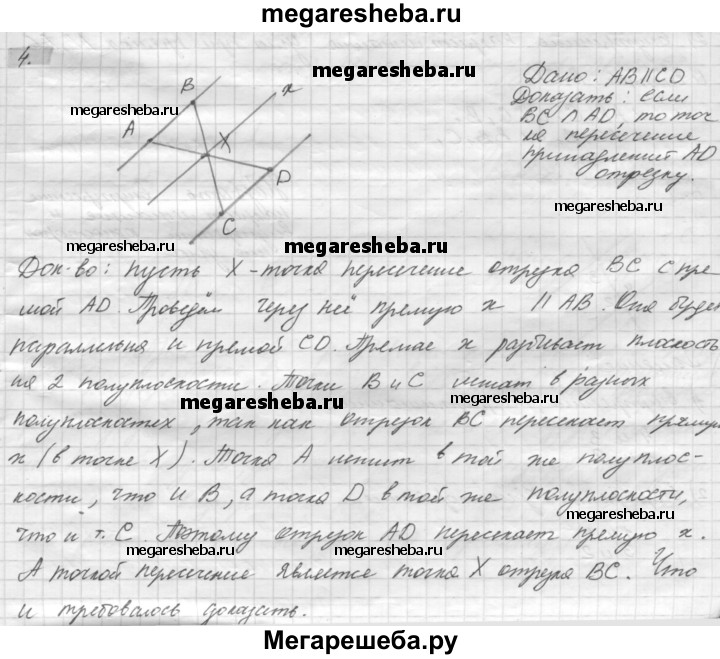 megaresheba.ru
4.
B
x
A
X
D
C
megaresheba.ru
megaresheba.ru
megaresheba.ru
megaresheba.ru
Дано: AB || CD
Доказать: если
BC ∩ AD, то точ
ка пересечение
принадлежит AD
отрезку.
Док-во: пусть X - точка пересечение отрезка BC с пря
мой AD. Проведём через неё прямую x || AB. Она будет
параллельна и прямой CD. Прямая x разбивает плоскость
на 2 полуплоскости. Точки B и C лежат в разных
megaresheba.ru
megaresheba.ru
полуплоскостях, так как отрезок BC пересекает прямую
x (в точке X). Точка A лежит в той же полуплос-
кости, что и B, а точка D в той же полуплоскости,
megaresheba.ru
что и т. C. Поэтому отрезок AD пересекает прямую x.
megaresheba.ru
megaresheba.ru
А точкой пересечение является точка X отрезка BC. Что
и требовалось доказать.
Мегарешеба.ру